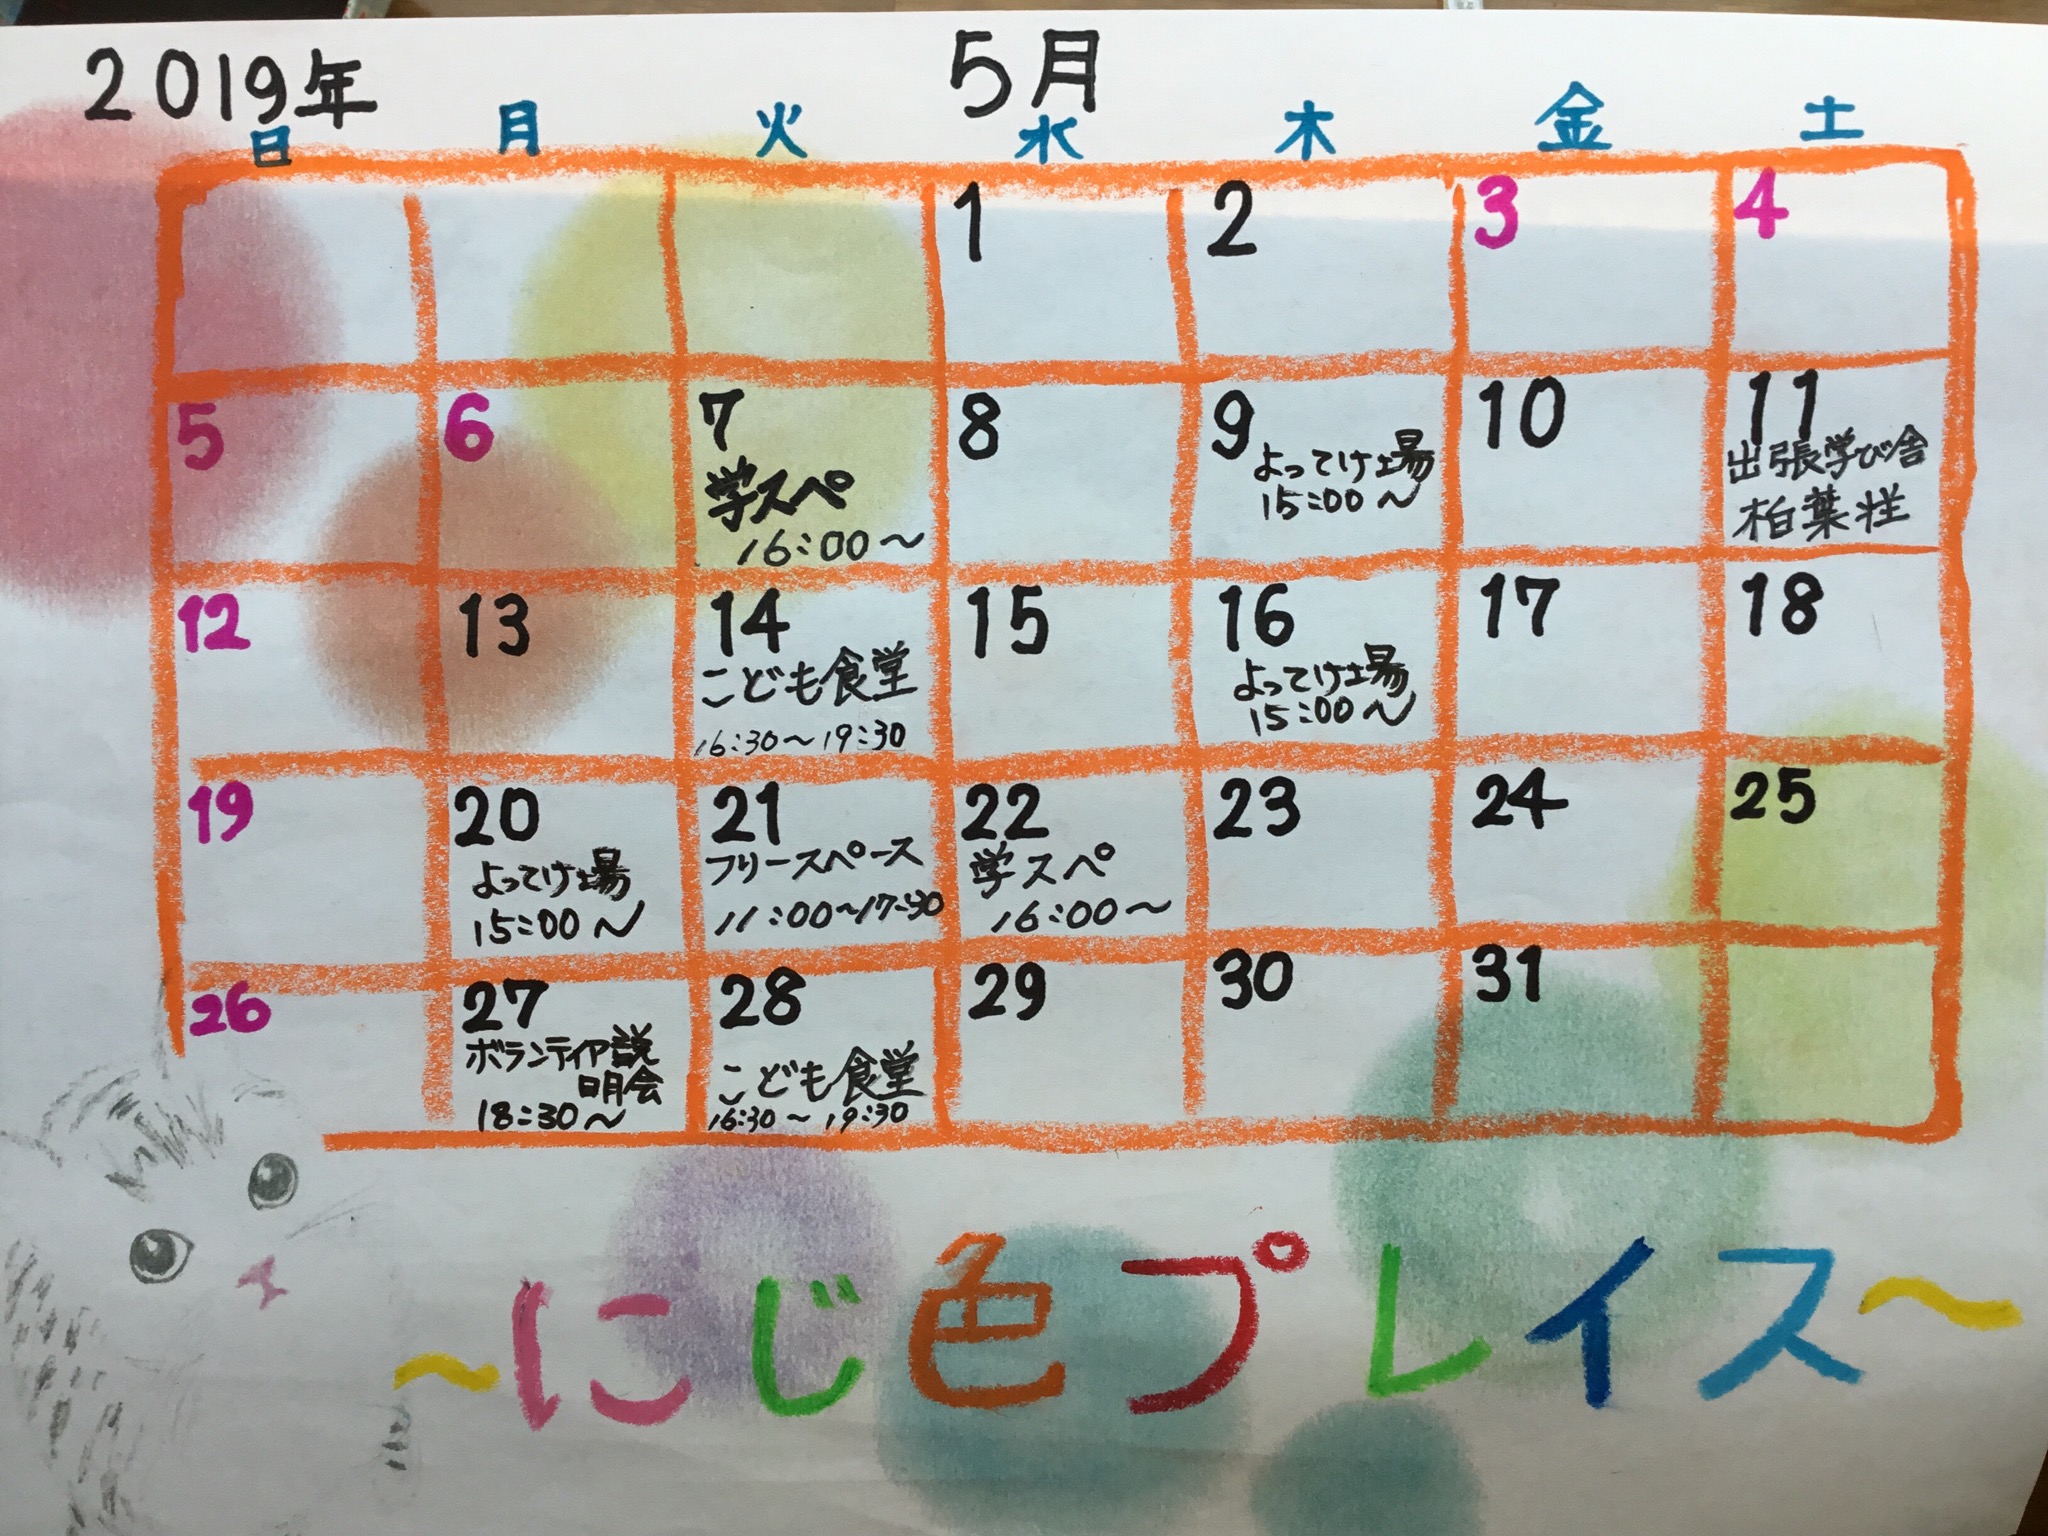 2019年 5月
日 月 火 水 木 金 土
1 2 3 4
5 6 7 8 9 10 11
学スペ
16:00〜
よってけ場
15:00〜
出張学び舎
柏葉荘
12 13 14 15 16 17 18
こども食堂
16:30〜19:30
よってけ場
15:00〜
19 20 21 22 23 24 25
よってけ場
15:00〜
フリースペース
11:00〜17:30
学スペ
16:00〜
26 27 28 29 30 31
ボランティア説
明会
18:30〜
こども食堂
16:30〜19:30
〜にじ色プレイス〜